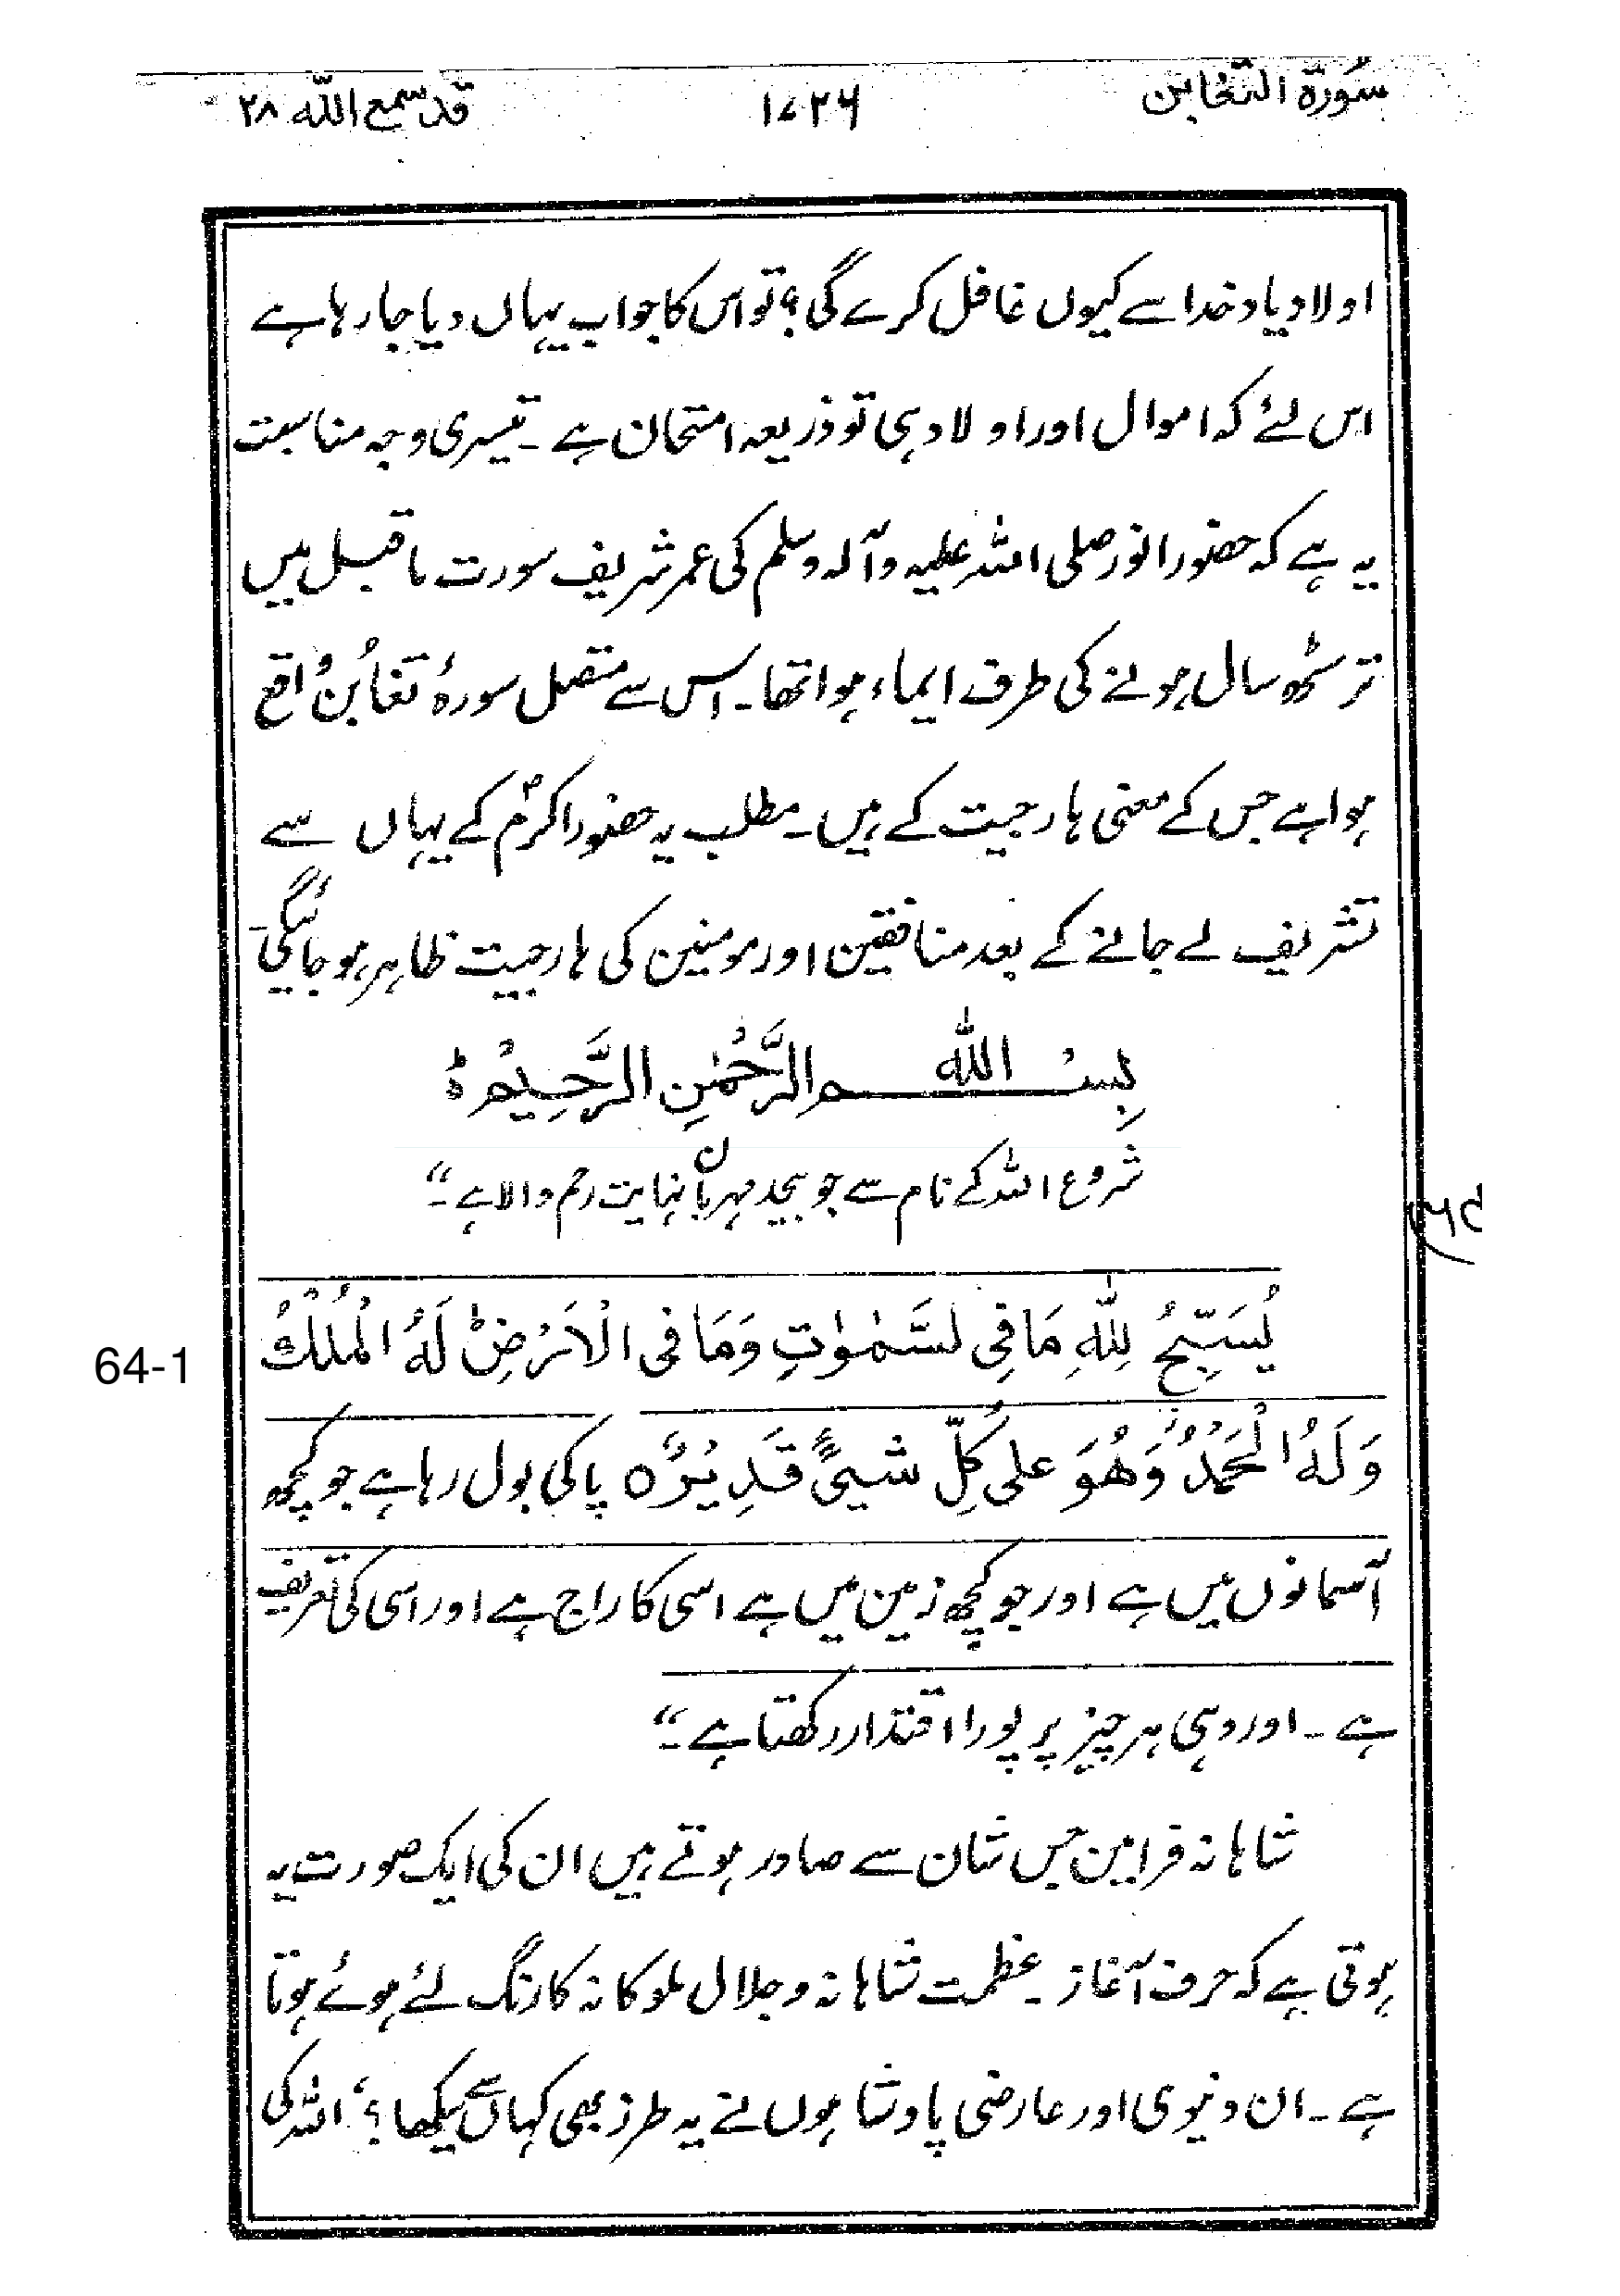 سُورۃ التغابن ۱۷۲۶ قد سمع اللہ ۲۸
اولاد یاد خدا سے کیوں غافل کرے گی؟ تو اس کا جواب یہاں دیا جا رہا ہے
اس لئے کہ اموال اور اولاد ہی تو ذریعہ امتحان ہے ۔ تیسری وجہ مناسبت
یہ ہے کہ حضور انور صلی اللہ علیہ وآلہ وسلم کی عمر شریف سورت ما قبل میں
ترسٹھ سال ہونے کی طرف ایماء ہوا تھا ۔ اس سے متصل سورۂ تغابُن واقع
ہوا ہے جس کے معنی ہار جیت کے ہیں ۔ مطلب یہ حضور اکرمؐ کے یہاں سے
تشریف لے جانے کے بعد منافقین اور مومنین کی ہار جیت ظاہر ہو جائیگی۔
بِسْمِ اللهِ الرَّحْمٰنِ الرَّحِيْمِ ط
شروع اللہ کے نام سے جو بیحد مہربان نہایت رحم والا ہے ۔“
64-1 يُسَبِّحُ لِلّٰهِ مَا فِي لسَّمٰوٰتِ وَمَا فى الْاَرْضِ ط لَهُ الْمُلْكُ
وَلَهُ الْحَمْدُ وَهُوَ على كُلِّ شيئٍ قَدِيْرٌ ہ پاکی بول رہا ہے جو کچھ
آسمانوں میں ہے اور جو کچھ زمین میں ہے اسی کا راج ہے اور اسی کی تعریف
ہے ۔ اور وہی ہر چیز پر پورا اقتدار رکھتا ہے ۔“
شاہانہ فرامین جس شان سے صادر ہوتے ہیں ان کی ایک صورت یہ
ہوتی ہے کہ حرف آغاز ۔ عظمت شاہانہ و جلال ملوکانہ کا رنگ لئے ہوئے ہوتا
ہے ۔ ان دنیوی اور عارضی پادشاہوں نے یہ طرز بھی کہاں سے سیکھا؟ اللہ کی